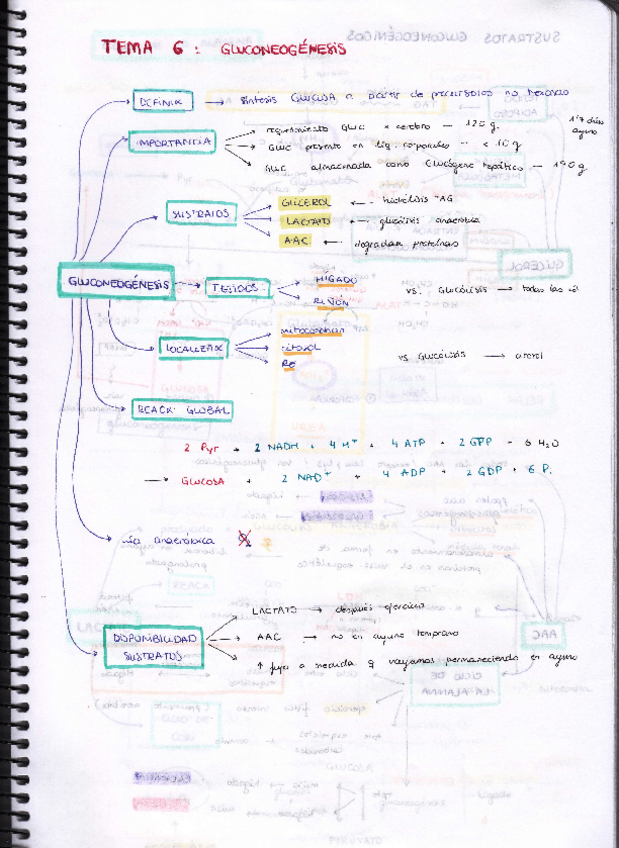 TEMA 6 : GLUCONEOGÉNESIS
DEFINIR → síntesis GLUCOSA a partir de precursores no hexosas
IMPORTANCIA
requerimiento GLUC x cerebro — 120 g.
GLUC presente en líq. corporales — < 20 g
GLUC almacenada como Glucógeno hepático — 190 g
ayuno
SUSTRATOS
GLICEROL ← hidrólisis TAG
LACTATO ← glucólisis anaerobia
AAC ← degradación proteínas
GLUCONEOGÉNESIS
TEJIDOS
HÍGADO
RIÑÓN
vs. Glucólisis → todas las cél
LOCALIZAR
mitocondrias
citosol
RE
vs Glucólisis → citosol
REACR GLOBAL
2 Pyr + 2 NADH + 4 H⁺ + 4 ATP + 2 GTP + 6 H₂O
→ GLUCOSA + 2 NAD⁺ + 4 ADP + 2 GDP + 6 Pi
vía anaeróbica
DISPONIBILIDAD SUSTRATOS
LACTATO → después ejercicio
AAC → no en ayuno temprano
↑ flujo a medida q vayamos permaneciendo en ayuno